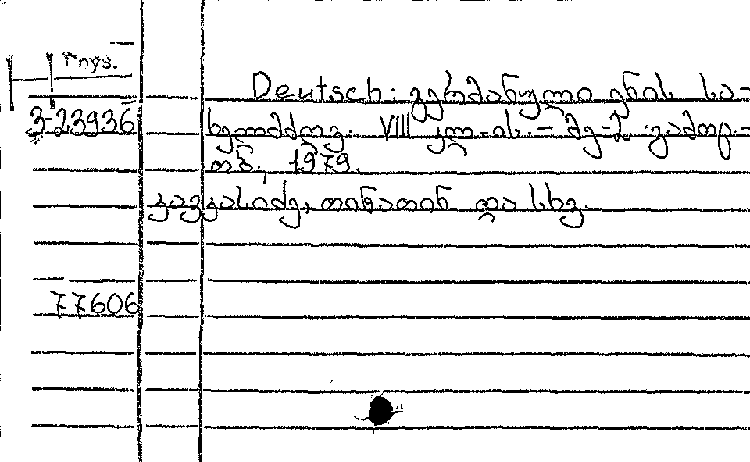 Deutsch: გერმანული ენის სა-
3-23936
ხელმძღვ. VIII კლ-ის. – მე-2 გამოც. –
თბ., 1979.
კავკასიძე, თინათინ და სხვ.
77606